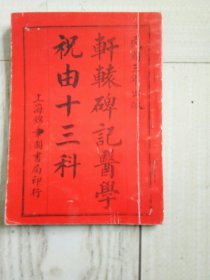 軒轅碑記醫學
祝由十三科
上海圖書局印行